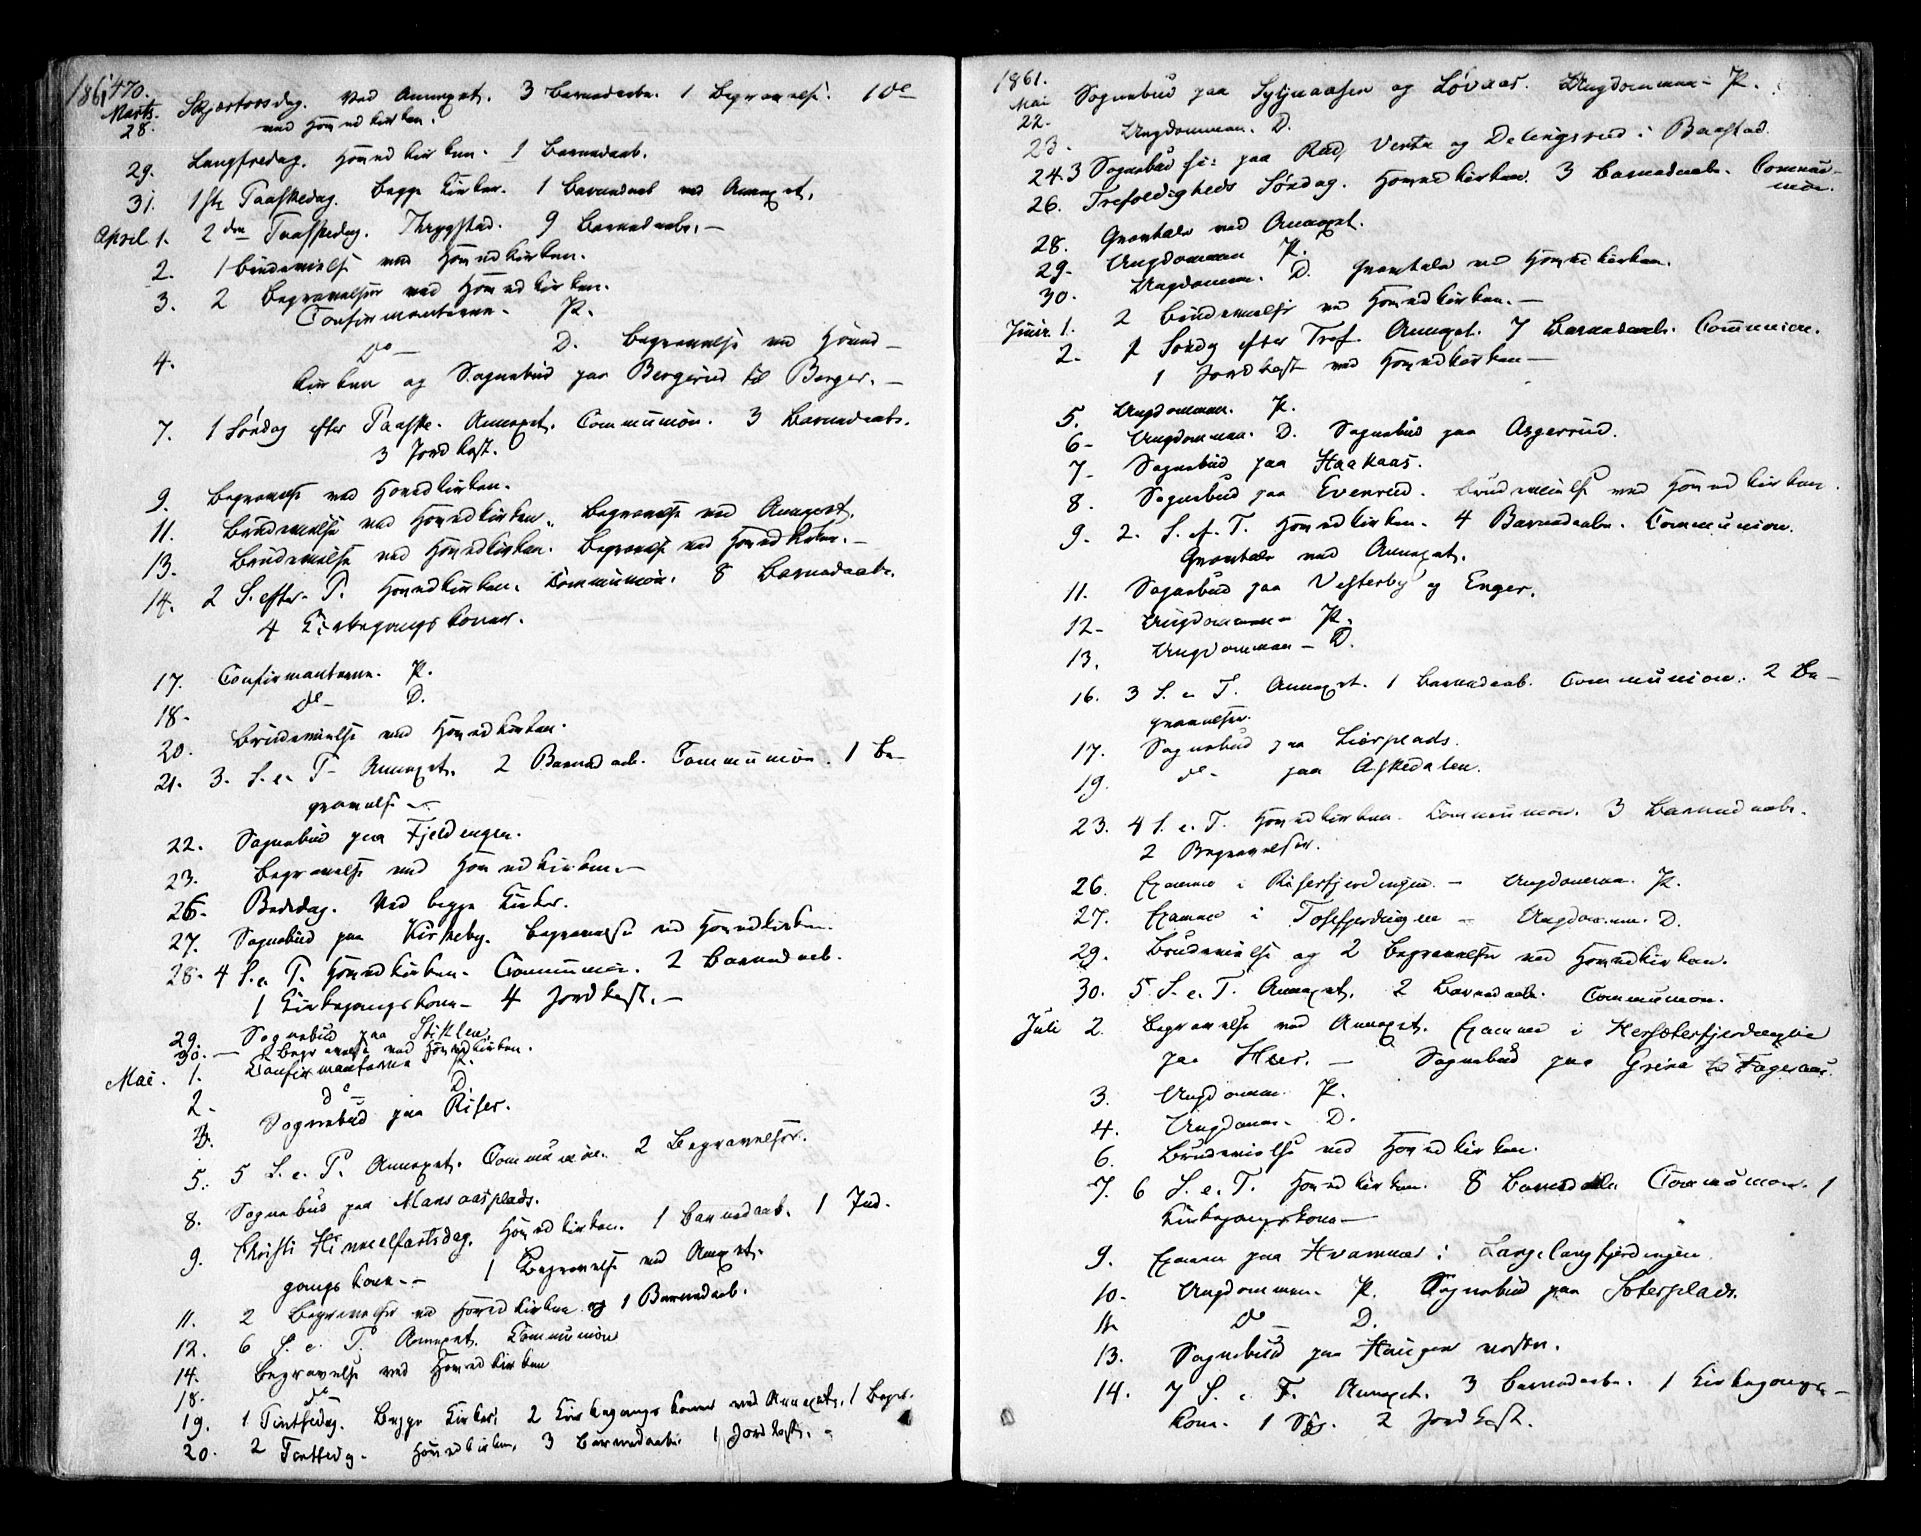 1861 470.
Marts. 28. Skjærtorsdag. Ved Annexet. 3 Barnedaabe. 1 Begravelse. 1 do
ved Hovedkirken.
29. Langfredag. Hovedkirken. 1 Barnedaab.
31. 1ste Paaskedag. Begge Kirker. 1 Barnedaab ved Annexet.
April 1. 2den Paaskedag. Thrygstad. 9 Barnedaabe. –
2. 1 Brudevielse ved Hovedkirken.
3. 2 Begravelser ved Hovedkirken.
Confirmanterne. P.
4. do – D. Begravelse ved Hoved–
kirken og Sognebud paa Bergerud til Berger. –
7. 1 Søndag efter Paaske. Annexet. Communion. 3 Barnedaabe.
3 Jordkast.
9. Begravelse ved Hovedkirken.
11. Brudevielse ved Hovedkirken. Begravelse ved Annexet.
13. Brudevielse ved Hovedkirken. Begravelse ved Hovedkirken. –
14. 2 S. efter P. Hovedkirken. Communion. 8 Barnedaabe.
4 Kirkegangskoner.
17. Confirmanterne. P.
18. do – D.
20. Brudevielse ved Hovedkirken.
21. 3. S. e. P – Annexet. 2 Barnedaab. Communion. 1 Be–
gravelse –
22. Sognebud paa Fjeldengen.
23. Begravelse ved Hovedkirken. –
26. Bededag. Ved begge Kirker.
27. Sognebud paa Kirkeby. Begravelse ved Hovedkirken.
28. 4 S. e. P. Hovedkirken. Communion. 2 Barnedaab.
1 Kirkegangskone – 4 Jordkast. –
29. Sognebud paa Stiklen
30. – Begravelse ved Hovedkirken.
Mai. 1. Confirmanterne P.
2. do – D.
3. Sognebud paa Riser.
5. 5 S. e. P. Annexet. Communion. 2 Begravelser.
8. Sognebud paa Mansaasplads.
9. Christi Himmelfartsdag. Hovedkirken. 1 Barnedaab. 1 Ind–
gangskone. – 1 Begravelse ved Annexet.
11. 2 Begravelser ved Hovedkirken og 1 Barnedaab.
12. 6 S. e. P. Annexet. Communion
14. Begravelse ved Hovedkirken
18. do
19. 1 Pintsedag. Begge Kirker. 2 Kirkegangskoner ved Annexet. 1 Begr.
20. 2 Pintsedag – Hovedkirken. 3 Barnedaabe 1 Jordkast. –
1861.
Mai 22. Sognebud paa og Løvaas. Ungdommen – P.
23. Ungdommen. D.
24. 3 Sognebud paa Rud, og Delingsrud i Baastad.
26. Trefoldigheds Søndag. Hovedkirken. 3 Barnedaabe. Commu–
nion.
28. Gravtale ved Annexet.
29. Ungdommen P.
30. Ungdommen. D. Gravtale ved Hovedkirken.
Juni. 1. 2 Brudevielser ved Hovedkirken. –
2. 1 Søndag efter Tref. Annexet. 7 Barnedaabe. Communion.
1 Jordkast ved Hovedkirken –
5. Ungdommen. P.
6. Ungdommen. D. Sognebud paa Asgerrud.
7. Sognebud paa Haakaas.
8. Sognebud paa Evenrud. Brudevielse ved Hovedkirken.
9. 2. S. e. T. Hovedkirken. 4 Barnedaabe. Communion.
Gravtale ved Annexet.
11. Sognebud paa Vesterby og Enger.
12. Ungdommen – P.
13. Ungdommen – D.
16. 3 S. e T. Annexet. 1 Barnedaab. Communion. 2 Be–
gravelser.
17. Sognebud paa Lierplads.
19. do – paa Askedalen.
23. 4 S. e. T. Hovedkirken. Communion. 3 Barnedaabe.
2 Begravelser.
26. Examen i Riserfjerdingen. – Ungdommen. P.
27. Examen i – Ungdommen. D.
29. Brudevielse og 2 Begravelser ved Hovedkirken.
30. 5. S. e. T. Annexet. 2 Barnedaabe. Communion.
Juli 2. Begravelse ved Annexet. Examen i Hersæterfjerdingen
paa Haer. – Sognebud paa Grina til Fageraas.
3. Ungdommen P.
4. Ungdommen D.
6. Brudevielse ved Hovedkirken.
7. 6 S. e. T. Hovedkirken. 8 Barnedaabe. Communion. 1
Kirkegangskone –
9. Examen paa Hvammer i Langelangfjerdingen
10. Ungdommen. P. Sognebud paa Soterplads.
11. do – D.
13. Sognebud paa Haugen .
14. 7 S. e T. Annexet. 3 Barnedaabe. 1 Kirkegangs–
kone. 1 . 2 Jordkast.